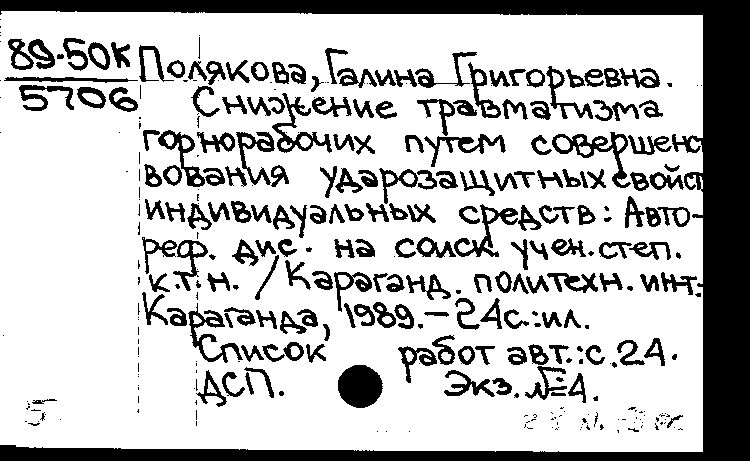 89-50К
5706
Полякова, Галина Григорьевна.
Снижение травматизма
горнорабочих путем совершенст
вования ударозащитных свойст
индивидуальных средств: Авто-
реф. дис. на соиск. учен. степ.
к.т.н. / Караганд. политехн. ин-т.-
Караганда, 1989.-24с.:ил.
Список работ авт.: с.24.
ДСП. Экз. №4.
5